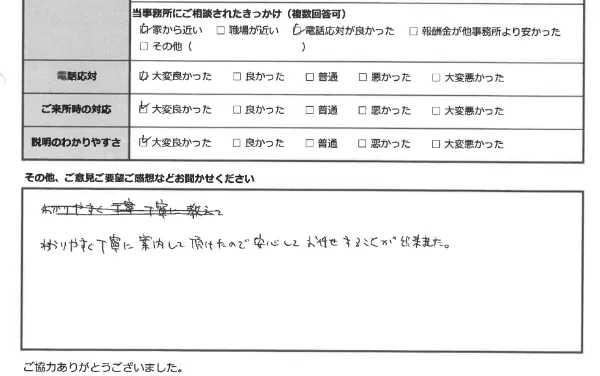 当事務所にご相談されたきっかけ（複数回答可）
☑家から近い □職場が近い ☑電話応対が良かった □報酬金が他事務所より安かった
□その他（　　　　　　　　　　）
電話応対 ☑大変良かった □良かった □普通 □悪かった □大変悪かった
ご来所時の対応 ☑大変良かった □良かった □普通 □悪かった □大変悪かった
説明のわかりやすさ ☑大変良かった □良かった □普通 □悪かった □大変悪かった
その他、ご意見ご要望ご感想などお聞かせください
わかりやすく丁寧 丁寧に教えて
わかりやすく丁寧に案内して頂けたので安心してお任せすることが出来ました。
ご協力ありがとうございました。